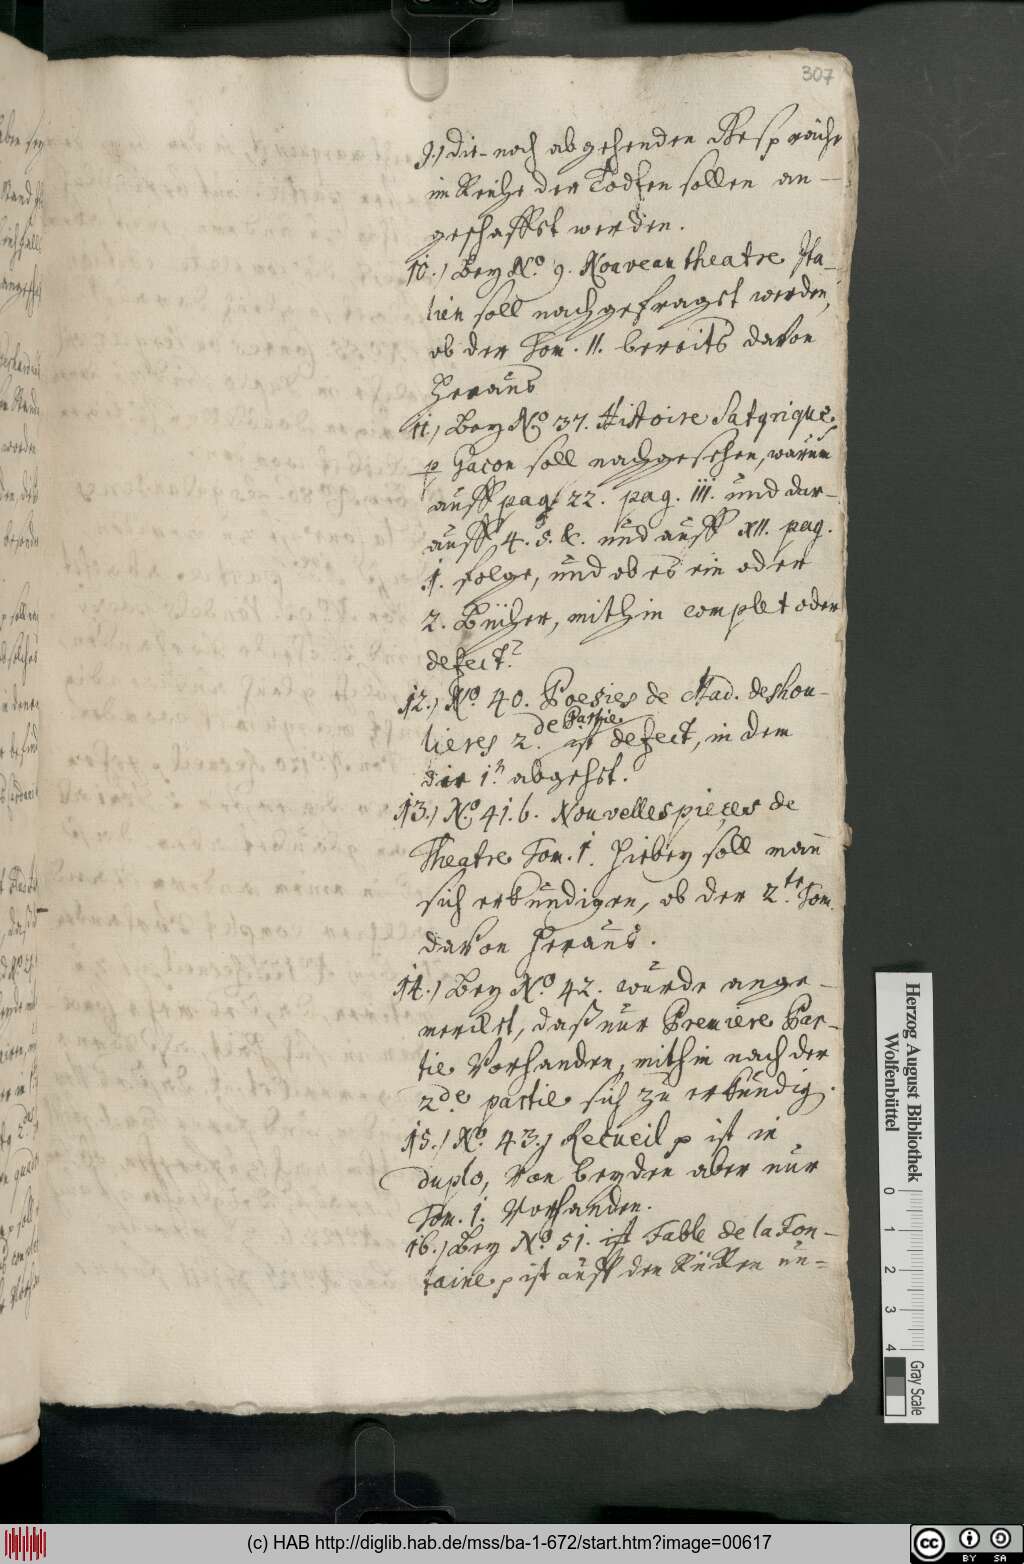 307
9.) die noch abgehenden Gespräche
im Reiche der Todten sollen an-
geschafft werden.
10.) Bey No. 9. Nouveau theatre Ita-
lien soll nachgefragt werden,
ob der Tom. II. bereits davon
heraus
11.) Bey No. 37. Histoire Satyrique
p Gacon soll nachgesehen, warum
auff pag. 22. pag. III. und dar-
auff 4. 5. &. und auff XII. pag.
1. folge, und ob es ein oder
2. Bücher, mithin complet oder
defect?
12.) No. 40. Poesies de Mad. deshou-
lieres 2.de Partie ist defect, in dem
die 1.te abgehet.
13.) No. 41. b. Nouvelles pieces de
Theatre Tom. 1. hiebey soll man
sich erkundigen, ob der 2.te Tom.
davon heraus.
14.) Bey No. 42. wurde ange-
merckt, daß nur Premiere Par-
tie vorhanden, mithin nach der
2.de partie sich zu erkundig.
15.) No. 43.) Recueil p ist in
duplo, von beyden aber nur
Tom. 1. vorhanden.
16.) Bey No. 51. ist Fable de la Fon-
taine p ist auff den Rücken un=
Herzog August Bibliothek
Wolfenbüttel
0 1 2 3 4
Gray Scale
(c) HAB http://diglib.hab.de/mss/ba-1-672/start.htm?image=00617
cc BY SA